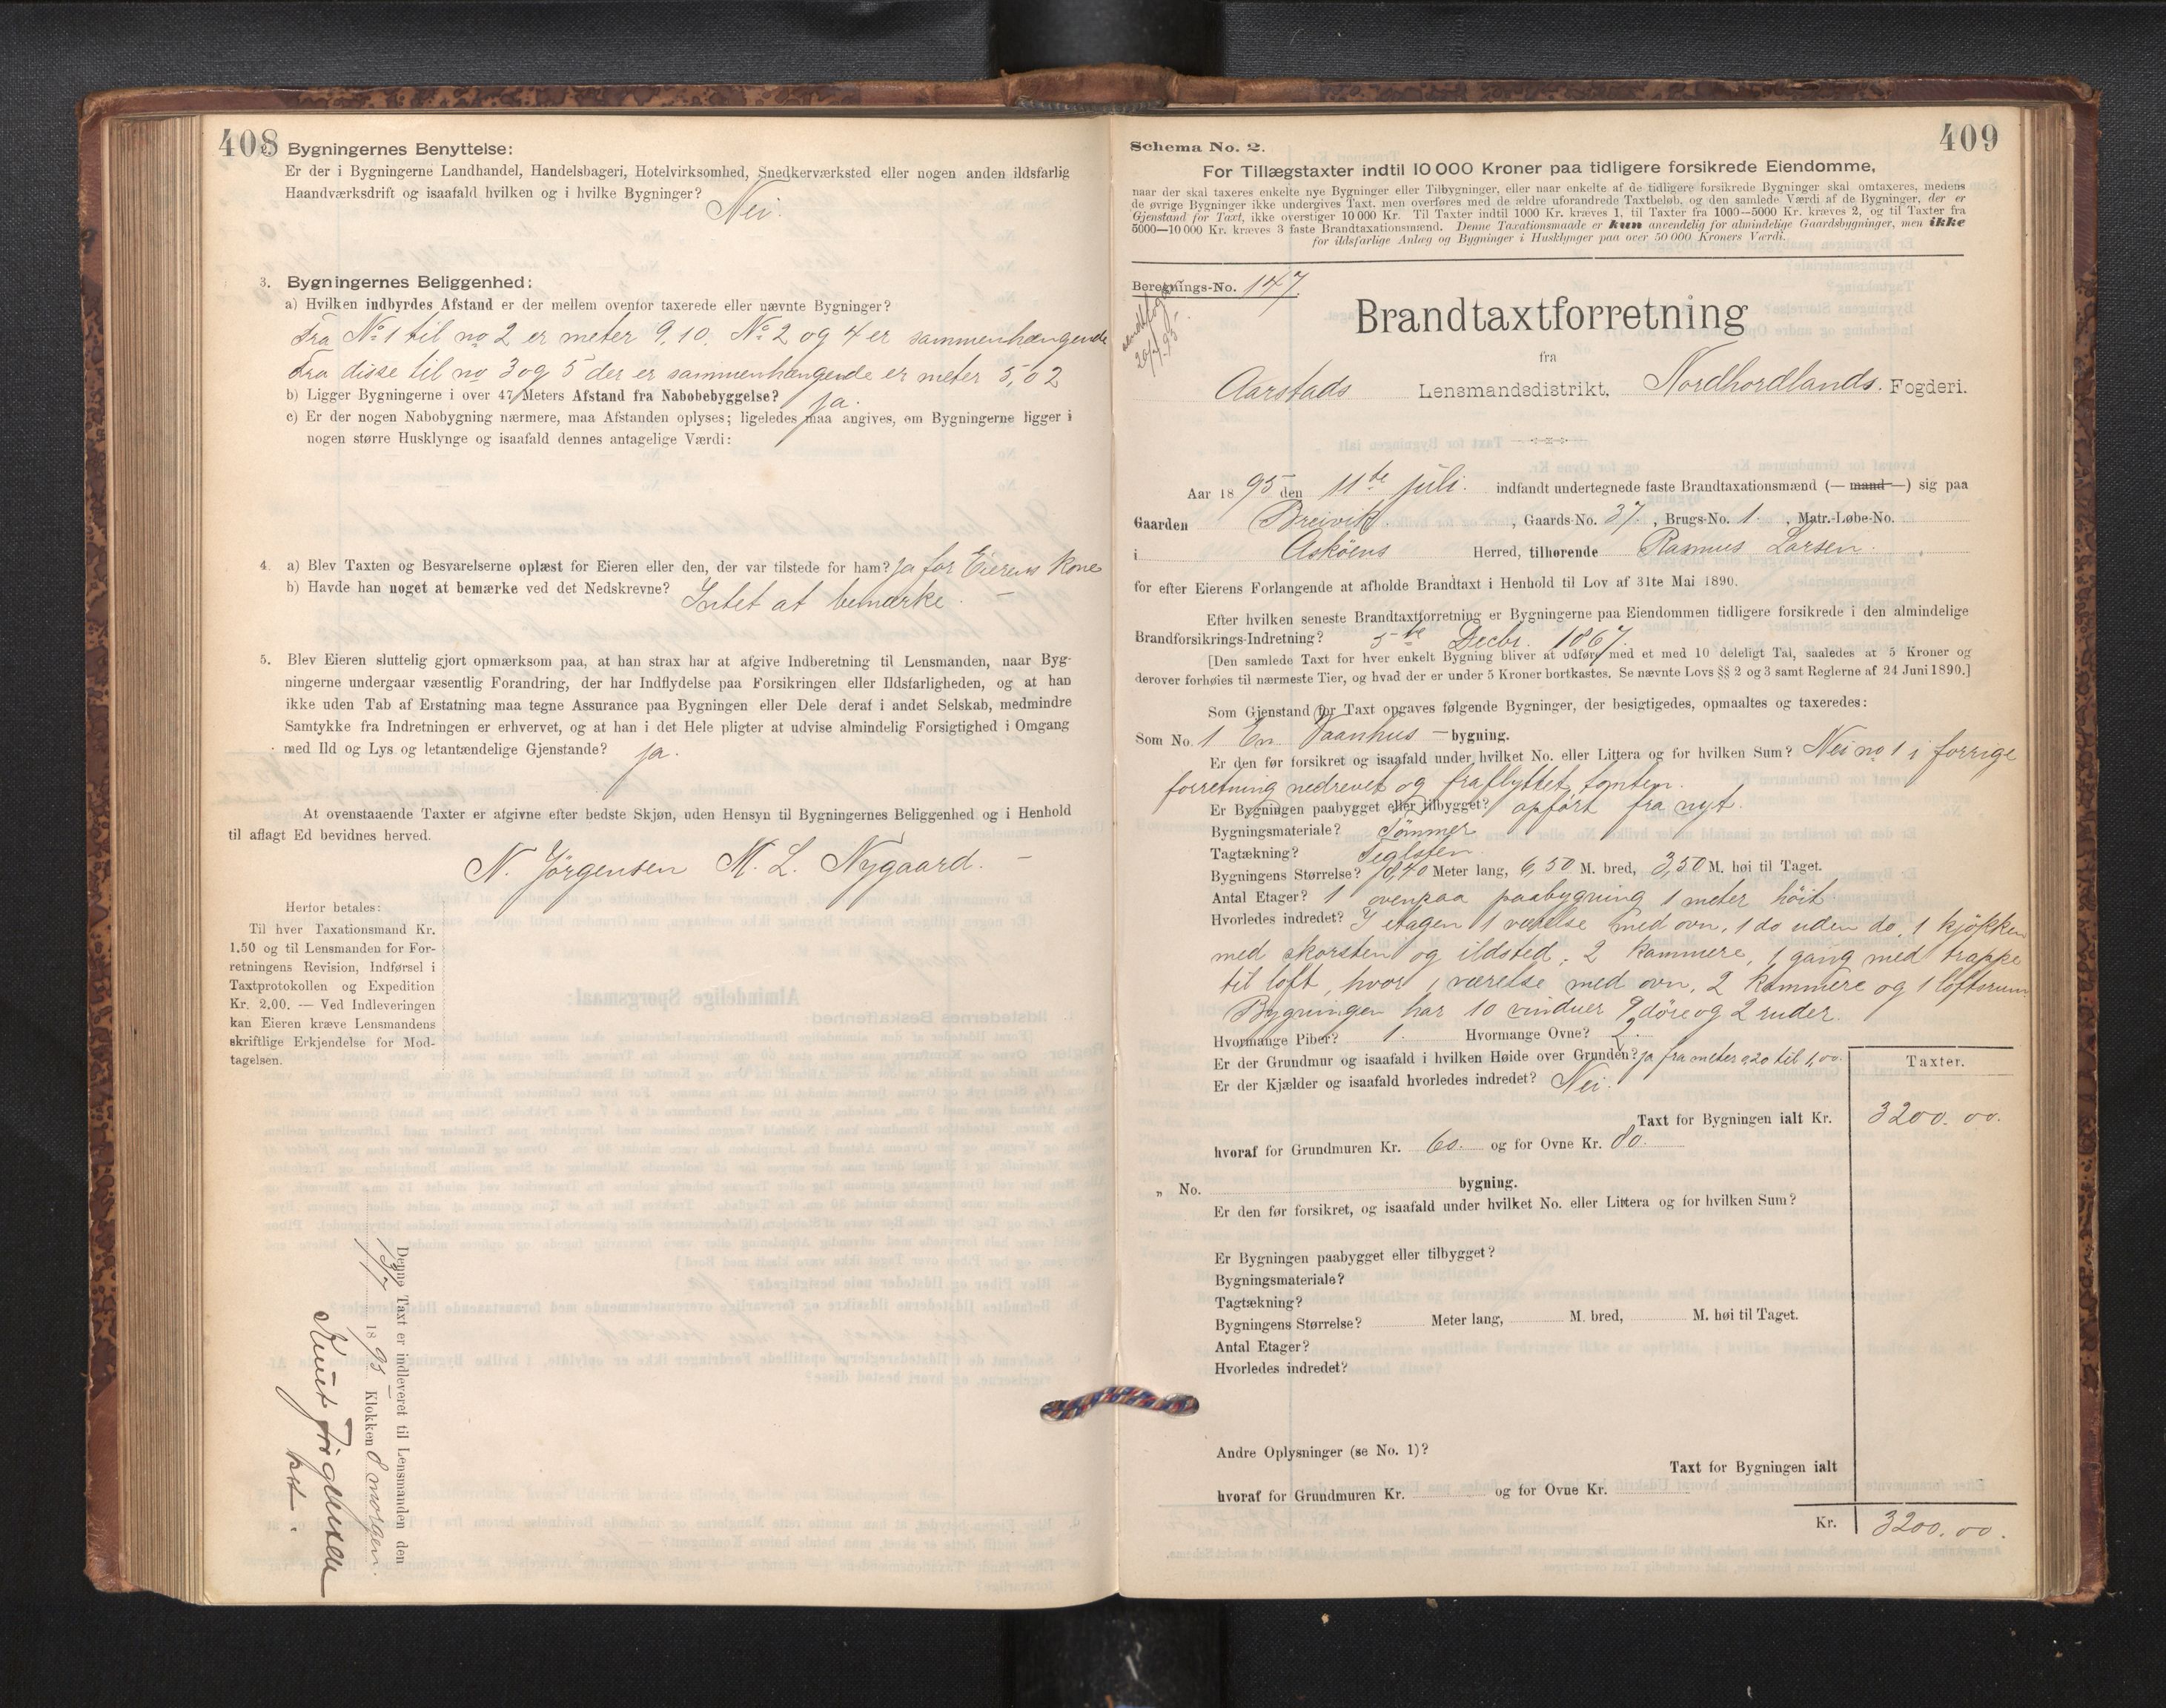 408
2. Bygningernes Benyttelse:
Er der i Bygningerne Landhandel, Handelsbageri, Hotelvirksomhed, Snedkerværksted eller nogen anden ildsfarlig
Haandværksdrift og isaafald hvilken og i hvilke Bygninger? Nei.
3. Bygningernes Beliggenhed:
a) Hvilken indbyrdes Afstand er der mellem ovenfor taxerede eller nævnte Bygninger?
Fra No 1 til no 2 er meter 9,10. No 2 og 4 er sammenhængende
Fra disse til no 3 og 5 der er sammenhængende er meter 5,02
b) Ligger Bygningerne i over 47 Meters Afstand fra Nabobebyggelse? ja.
c) Er der nogen Nabobygning nærmere, maa Afstanden oplyses; ligeledes maa angives, om Bygningerne ligger i
nogen større Husklynge og isaafald dennes antagelige Værdi:
4. a) Blev Taxten og Besvarelserne oplæst for Eieren eller den, der var tilstede for ham? ja for Eierens Kone
b) Havde han noget at bemærke ved det Nedskrevne? Intet at bemærke. —
5. Blev Eieren sluttelig gjort opmærksom paa, at han strax har at afgive Indberetning til Lensmanden, naar Byg-
ningerne undergaar væsentlig Forandring, der har Indflydelse paa Forsikringen eller Ildsfarligheden, og at han
ikke uden Tab af Erstatning maa tegne Assurance paa Bygningen eller Dele deraf i andet Selskab, medmindre
Samtykke fra Indretningen er erhvervet, og at han i det Hele pligter at udvise almindelig Forsigtighed i Omgang
med Ild og Lys og letantændelige Gjenstande? ja.
At ovenstaaende Taxter er afgivne efter bedste Skjøn, uden Hensyn til Bygningernes Beliggenhed og i Henhold
til aflagt Ed bevidnes herved.
N. Jörgensen M. L. Nygaard. —
Herfor betales:
Til hver Taxationsmand Kr.
1.50 og til Lensmanden for For-
retningens Revision, Indførsel i
Taxtprotokollen og Expedition
Kr. 2.00. — Ved Indleveringen
kan Eieren kræve Lensmandens
skriftlige Erkjendelse for Mod-
tagelsen.
Denne Taxt er indleveret til Lensmanden den
13/7 1895 Klokken 8 morgen.
Knut
409
Schema No. 2.
For Tillægstaxter indtil 10 000 Kroner paa tidligere forsikrede Eiendomme,
naar der skal taxeres enkelte nye Bygninger eller Tilbygninger, eller naar enkelte af de tidligere forsikrede Bygninger skal omtaxeres, medens
de øvrige Bygninger ikke undergives Taxt, men overføres med de ældre uforandrede Taxtbeløb, og den samlede Værdi af de Bygninger, der er
Gjenstand for Taxt, ikke overstiger 10 000 Kr. Til Taxter indtil 1000 Kr. kræves 1, til Taxter fra 1000—5000 Kr. kræves 2, og til Taxter fra
5000—10 000 Kr. kræves 3 faste Brandtaxationsmænd. Denne Taxationsmaade er kun anvendelig for almindelige Gaardsbygninger, men ikke
for ildsfarlige Anlæg og Bygninger i Husklynger paa over 50 000 Kroners Værdi.
Beretnings-No. 147.
Brandtaxtforretning
fra
Aarstads Lensmandsdistrikt, Nordhordlands. Fogderi.
Aar 1895 den 11te juli. indfandt undertegnede faste Brandtaxationsmænd (— mand —) sig paa
Gaarden Breivik, Gaards-No. 37, Brugs-No. 1., Matr.-Løbe-No.
i Asköens Herred, tilhørende Rasmus Larsen.
for efter Eierens Forlangende at afholde Brandtaxt i Henhold til Lov af 31te Mai 1890.
Efter hvilken seneste Brandtaxtforretning er Bygningerne paa Eiendommen tidligere forsikrede i den almindelige
Brandforsikrings-Indretning? 5te Decbr. 1867.
[Den samlede Taxt for hver enkelt Bygning bliver at udføre med et med 10 deleligt Tal, saaledes at 5 Kroner og
derover forhøies til nærmeste Tier, og hvad der er under 5 Kroner bortkastes. Se nævnte Lovs §§ 2 og 3 samt Reglerne af 24 Juni 1890.]
Som Gjenstand for Taxt opgaves følgende Bygninger, der besigtigedes, opmaaltes og taxeredes:
Som No. 1 En Vaanhus — bygning.
Er den før forsikret og isaafald under hvilket No. eller Littera og for hvilken Sum? Nei no 1 i forrige
forretning nedrevet og fraflyttet tomten.
Er Bygningen paabygget eller tilbygget? opført fra nyt.
Bygningsmateriale? Tömmer
Tagtækning? Teglsten.
Bygningens Størrelse? 10,40 Meter lang, 6,50 M. bred, 3,50 M. høi til Taget.
Antal Etager? 1 ovenpaa paabygning 1 meter höit
Hvorledes indredet? I etagen 1 værelse med ovn, 1 do uden do, 1 kjökken
med skorsten og ildsted, 2 kammere, 1 gang med trappe
til loft, hvor 1 værelse med ovn, 2 kammere og 1 loftsrum
Bygningen har 10 vinduer 9 döre og 2 ruder.
Hvormange Piber? 1. Hvormange Ovne? 2.
Er der Grundmur og isaafald i hvilken Høide over Grunden? ja fra meter 0,20 til 1,00.
Er der Kjælder og isaafald hvorledes indredet? Nei.
Taxter.
Taxt for Bygningen ialt Kr. 3200.00.
hvoraf for Grundmuren Kr. 60. og for Ovne Kr. 80.
„ No. bygning.
Er den før forsikret, og isaafald under hvilket No. eller Littera og for hvilken Sum?
Er Bygningen paabygget eller tilbygget?
Bygningsmateriale?
Tagtækning?
Bygningens Størrelse? Meter lang, M. bred, M. høi til Taget.
Antal Etager?
Hvorledes indredet?
Andre Oplysninger (se No. 1)?
Taxt for Bygningen ialt
hvoraf for Grundmuren Kr. og for Ovne Kr.
Kr. 3200.00.